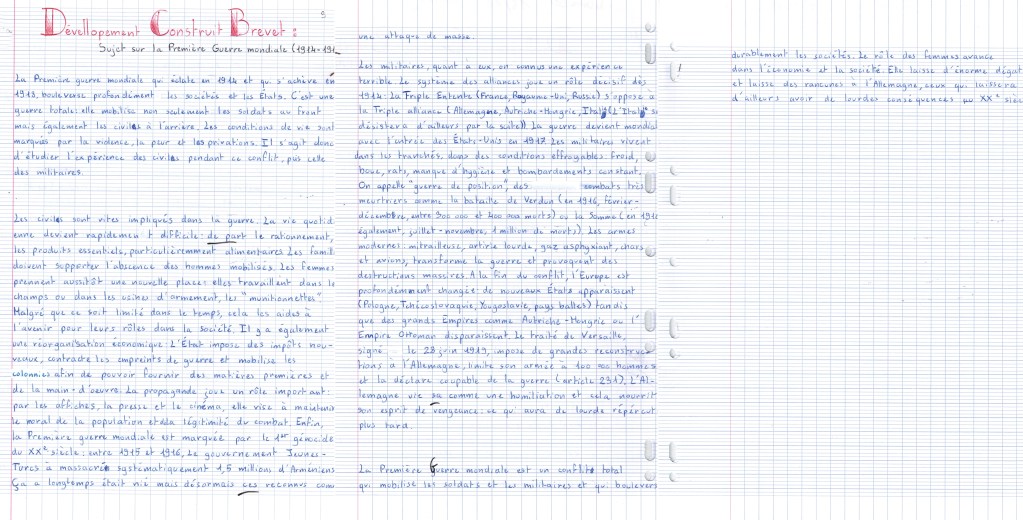 Dévellopement Construit Brevet :
Sujet sur la Première Guerre mondiale (1914-191
La Première guerre mondiale qui éclate en 1914 et qui s'achève en
1918, bouleverse profondément les sociétés et les États. C'est une
guerre totale: elle mobilise non seulement les soldats au front
mais également les civiles à l'arrière. Les conditions de vie sont
marqués par la violence, la peur et les privations. Il s'agit donc
d'étudier l'expérience des civiles pendant ce conflit, puis celle
des militaires.
Les civiles sont vites impliqués dans la guerre. La vie quotid
enne devient rapidement difficile: de part le rationnement,
les produits essentiels, particulièremment alimentaires Les famil
doivent supporter l'abscence des hommes mobilisés. Les femmes
prennent aussitôt une nouvelle place: elles travaillent dans le
champs ou dans les usines d'armement, les "munitionnettes"
Malgré que ce soit limité dans le temps, cela les aides à
l'avenir pour leurs rôles dans la société. Il y a également
une réorganisation économique: L'État impose des impôts nou-
veaux, contracte les empreints de guerre et mobilise les
colonnies afin de pouvoir fournir des matières premières et
de la main-d'oeuvre. La propagande joue un rôle important:
par les affiches, la presse et le cinéma, elle vise à maintenir
le moral de la population et la légitimité du combat. Enfin,
la Première guerre mondiale est marquée par le 1er génocide
du XXe siècle: entre 1915 et 1916, Le gouvernement Jeunes-
Turcs à massacrés systématiquement 1,5 millions d'Arméniens
Ça a longtemps était nié mais désormais ces reconnus com
une attaque de masse.
Les militaires, quant a eux, on connus une expérience
terrible Le système des alliances joue un rôle décisif dès
1914. La Triple Entente (France, Royaume-Uni, Russe) s'oppose a
la Triple alliance (Allemagne, Autriche-Hongrie, Italie (L'Italie se
désistera d'ailleurs par la suite)) La guerre devient mondial
avec l'entrée des États-Unis en 1917 Les militaires vivent
dans les tranchés, dans des conditions effroyables: froid,
boue, rats, manque d'hygiène et bombardements constant.
On appelle "guerre de position", des combats très
meurtriers comme la bataille de Verdun (en 1916, février-
décembre, entre 300 000 et 400 000 morts) ou la Somme (en 1916
également, juillet-novembre, 1 million de morts). Les armes
modernes: mitrailleuse, artirle lourde, gaz asphyxiant, chars
et avions, transforme la guerre et provoquent des
destructions massives. A la fin du conflit, l'Europe est
profondemment changée: de nouveaux États apparaissent
(Pologne, Tchécoslovaquie, Yougoslavie, pays baltes) tandis
que des grands Empires comme Autriche-Hongrie ou l'
Empire Ottoman disparaissent. Le traité de Versaille,
signé le 28 juin 1919, impose de grandes reconstruc-
tions a l'Allemagne, limite son armée à 100 000 hommes
et la déclare coupable de la guerre (article 231). L'Al-
lemagne vie sa comme une humiliation et cela nourrit
son esprit de vengeance: ce qui aura de lourde répércut
plus tard.
La Première Guerre mondiale est un conflits total
qui mobilise les soldats et les militaires et qui boulevers
durablement les sociétés. Le rôle des femmes avance
dans l'économie et la société. Elle laisse d'énorme dégat
et laisse des rancunes à l'Allemagne, ceux qui laissera
d'ailleurs avoir de lourdes conséquences au XXe siècl